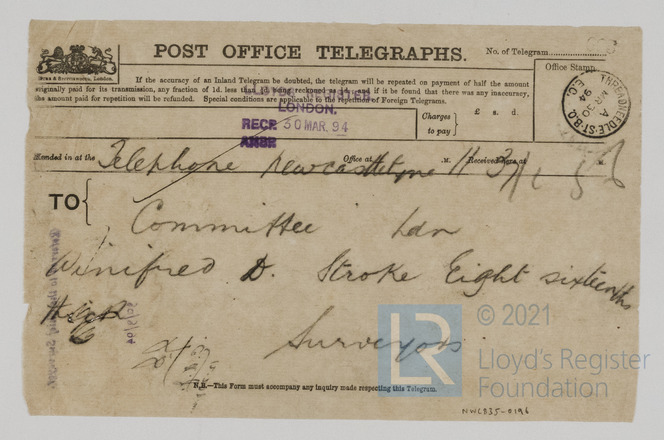 POST OFFICE TELEGRAPHS.
No. of Telegram
If the accuracy of an Inland Telegram be doubted, the telegram will be repeated on payment of half the amount
originally paid for its transmission, any fraction of 1d. less than ½d. being reckoned as ½d.; and if it be found that there was any inaccuracy,
the amount paid for repetition will be refunded. Special conditions are applicable to the repetition of Foreign Telegrams.
Office Stamp.
THREADNEEDLE ST. B.O.
A
MR 30
94
E.C.
LLOYD'S REGISTER
LONDON.
RECD 30 MAR. 94
ANSD
Charges to pay
£ s. d.
Handed in at the Telephone Newcastletyne Office at 11 37 M. Received here at M.
TO
Committee Ldn
Winifred D. Stroke Eight sixteenths
Surveyors
30/3/94
N.B.—This Form must accompany any inquiry made respecting this Telegram.
NWC835-0196
LR
© 2021
Lloyd's Register
Foundation